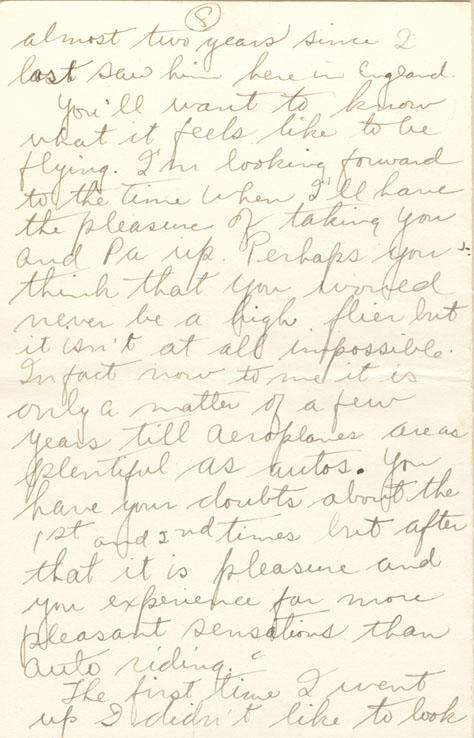 8
almost two years since I
last saw him here in England.
You'll want to know
what it feels like to be
flying. I'm looking forward
to the time when I'll have
the pleasure of taking you
and Pa up. Perhaps you
think that you would
never be a high flier but
it isn't at all impossible.
In fact now to me it is
only a matter of a few
years till aeroplanes are as
plentiful as autos. You
have your doubts about the
1st and 2nd times but after
that it is pleasure and
you experience far more
pleasant sensations than
auto riding."
The first time I went
up I didn't like to look